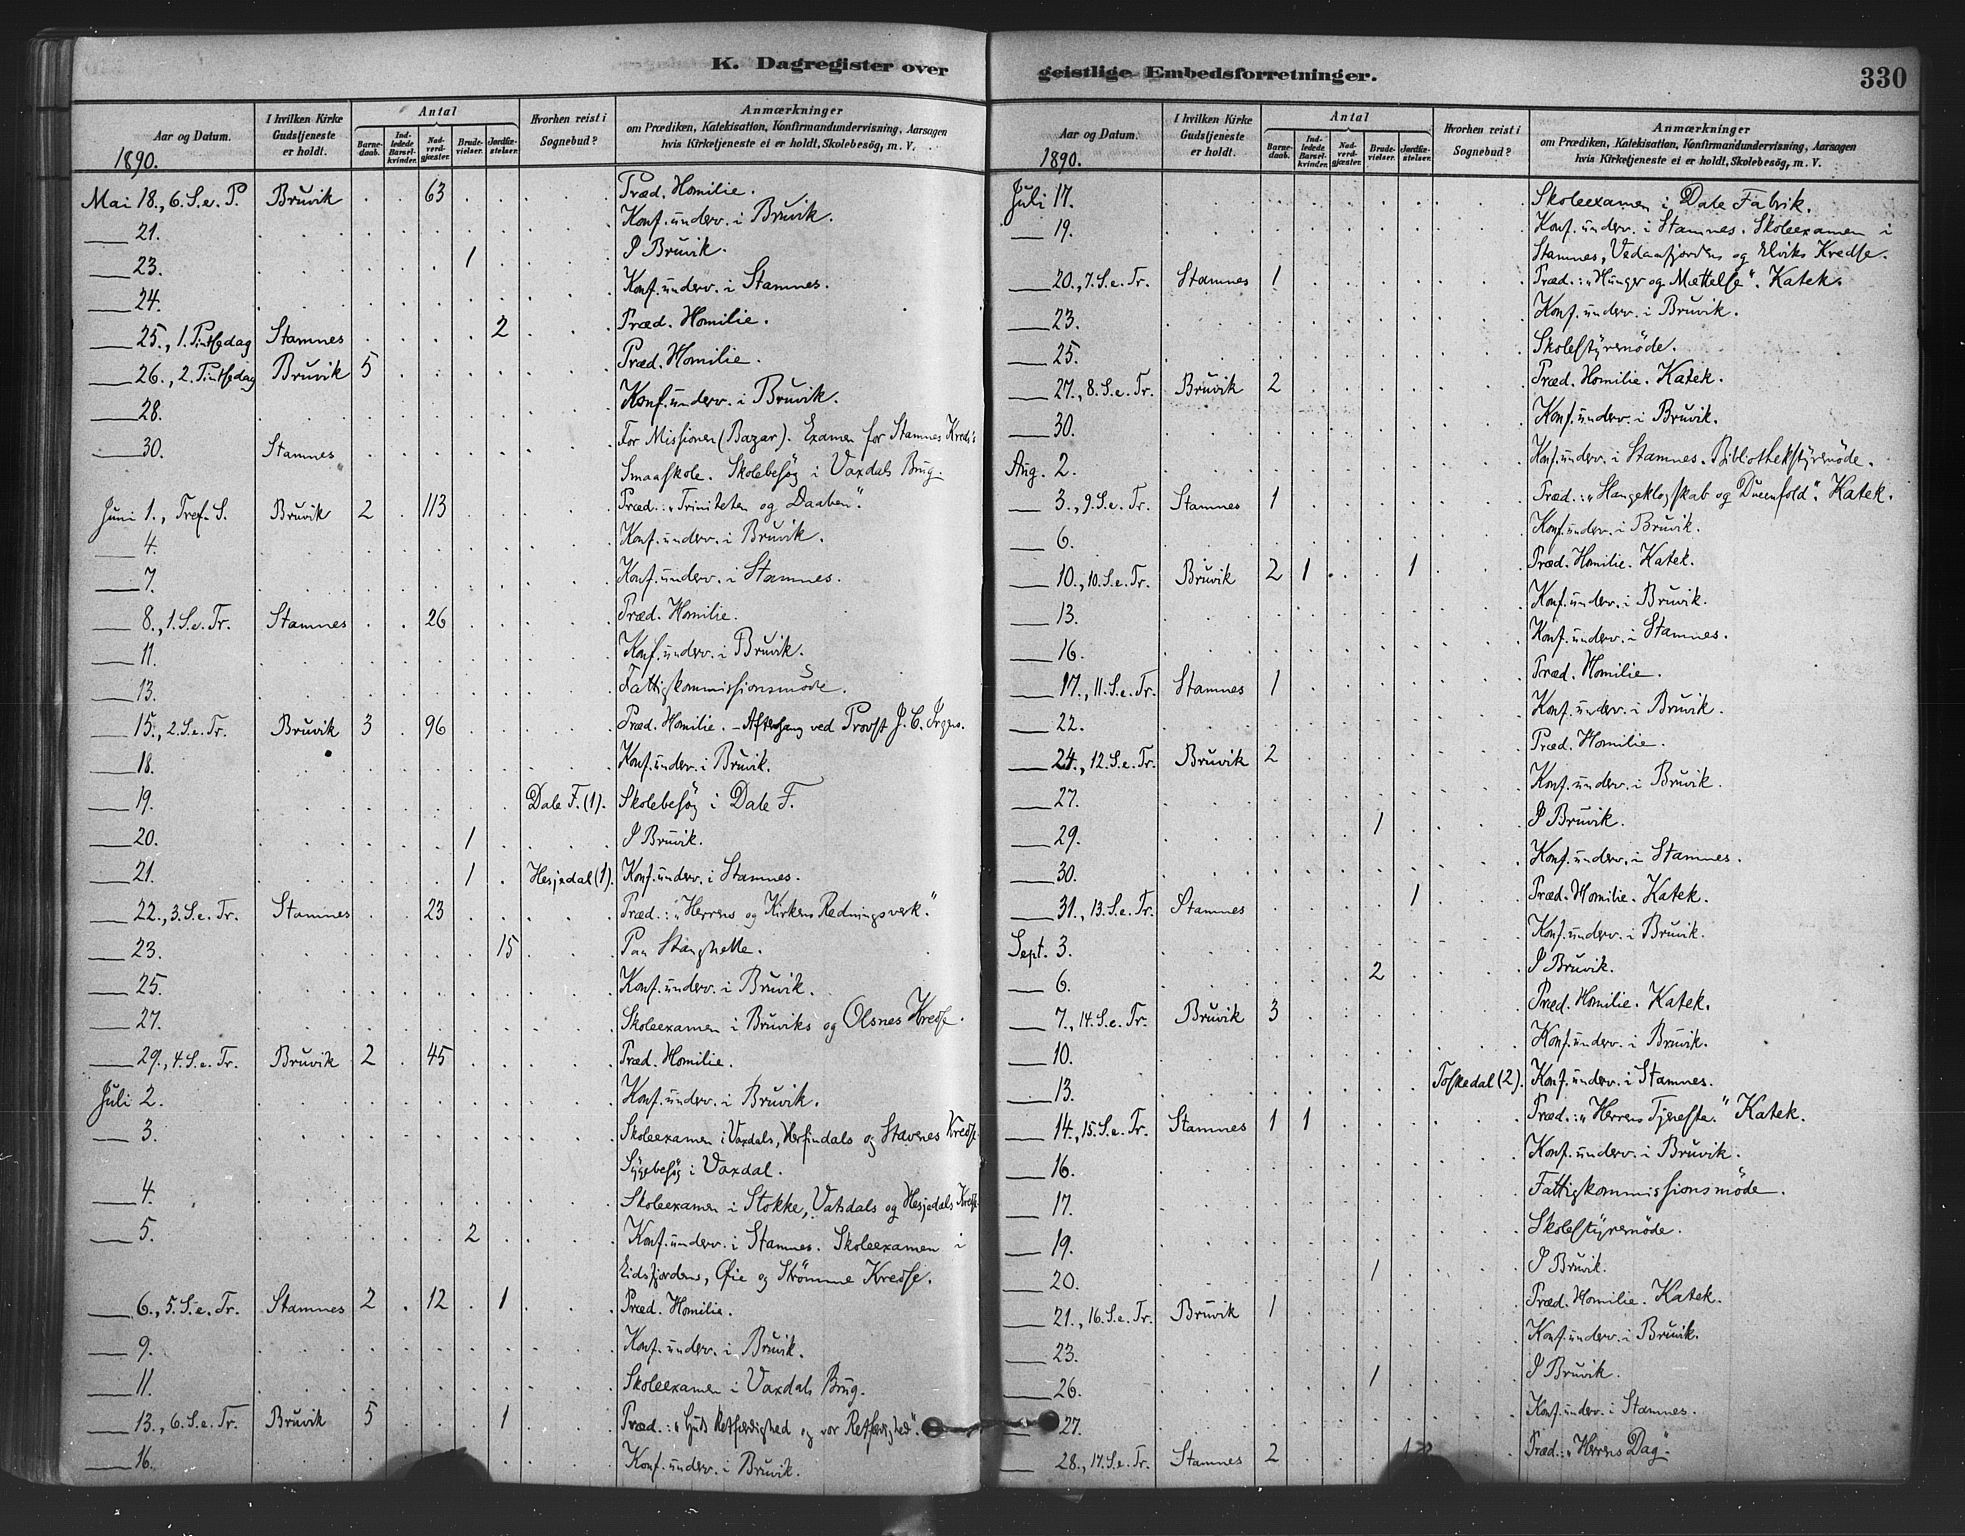 K. Dagregister over
Aar og Datum.
I hvilken Kirke Gudstjeneste er holdt.
Antal
Barne-daab.
Ind-ledede Barsel-kvinder.
Nad-verd-gjæster.
Brude-vielser.
Jordfæ-stelser.
Hvorhen reist i Sognebud?
Anmærkninger
om Prædiken, Katekisation, Konfirmandundervisning, Aarsagen
hvis Kirketjeneste ei er holdt, Skolebesög, m. V.
1890.
Mai 18., 6. S. e. P. Bruvik . . 63 . . . . Præd. Homilie.
21. Konf. underv. i Bruvik.
23. 1 I Bruvik.
24. Konf. underv. i Stamnes.
25., 1. Pintsedag Stamnes 2 Præd. Homilie.
26., 2. Pintsedag Bruvik 5 Præd. Homilie.
28. Konf. underv. i Bruvik.
30. Stamnes For Missionen (Bazar). Examen for Stamnes Kreds's
Smaaskole. Skolebesøg i Vaxdals Brug.
Juni 1., Tref. S. Bruvik 2 . 113 Præd.: "Triniteten og Daaben".
4. Konf. underv. i Bruvik.
7. Konf. underv. i Stamnes.
8., 1. S. e. Tr. Stamnes . . 26 Præd. Homilie.
11. Konf. underv. i Bruvik.
13. Fattigkommissionsmöde.
15., 2. S. e. Tr. Bruvik 3 . 96 Præd. Homilie. - Aftensang ved Provst J. C. Irgens.
18. Konf. underv. i Bruvik.
19. Dale F. (1). Skolebesøg i Dale F.
20. 1 I Bruvik.
21. 1 . Hesjedal (1). Konf. underv. i Stamnes.
22., 3. S. e. Tr. Stamnes . . 23 Præd.: "Herrens og Kirkens Redningsverk."
23. 15 Paa Stanghelle.
25. Konf. underv. i Bruvik.
27. Skoleexamen i Bruviks og Olsnes Kredse.
29., 4. S. e. Tr. Bruvik 2 . 45 Præd. Homilie.
Juli 2. Konf. underv. i Bruvik.
3. Skoleexamen i Vaxdals, Herfindals og Stavenes Kredse.
Sygebesøg i Vaxdal.
4. Skoleexamen i Stokke, Vatsdals og Hesjedals Kredse
5. 2 Konf. underv. i Stamnes. Skoleexamen i
Eidsfjordens, Øie og Strömme Kredse.
6., 5. S. e. Tr. Stamnes 2 . 12 . 1 Præd. Homilie.
9. Konf. underv. i Bruvik.
11. Skoleexamen i Vaxdals Brug.
13., 6. S. e. Tr. Bruvik 5 . . . 1 Præd.: "Guds Retfærdighed og vor Retfærdighed".
16. Konf. underv. i Bruvik.
geistlige Embedsforretninger.
330
Aar og Datum.
I hvilken Kirke Gudstjeneste er holdt.
Antal
Barne-daab.
Ind-ledede Barsel-kvinder.
Nad-verd-gjæster.
Brude-vielser.
Jordfæ-stelser.
Hvorhen reist i Sognebud?
Anmærkninger
om Prædiken, Katekisation, Konfirmandundervisning, Aarsagen
hvis Kirketjeneste ei er holdt, Skolebesög, m. V.
1890.
Juli 17. Skoleexamen i Dale Fabrik.
19. Konf. underv. i Stamnes. Skoleexamen i
Stamnes, Vedaafjordens og Elviks Kredse.
20., 7. S. e. Tr. Stamnes 1 Præd.: "Hunger og Mættelse". Katek.
23. Konf. underv. i Bruvik.
25. Skolestyremöde.
27., 8. S. e. Tr. Bruvik 2 Præd. Homilie. Katek.
30. Konf. underv. i Bruvik.
Aug. 2. Konf. underv. i Stamnes. Bibliothekstyremöde.
3., 9. S. e. Tr. Stamnes 1 Præd.: "Slangeklogskab og Dueenfold". Katek.
6. Konf. underv. i Bruvik.
10., 10. S. e. Tr. Bruvik 2 1 . . 1 Præd. Homilie. Katek.
13. Konf. underv. i Bruvik.
16. Konf. underv. i Stamnes.
17., 11. S. e. Tr. Stamnes 1 Præd. Homilie.
22. Konf. underv. i Bruvik.
24., 12. S. e. Tr. Bruvik 2 Præd. Homilie.
27. Konf. underv. i Bruvik.
29. 1 I Bruvik.
30. Konf. underv. i Stamnes.
31., 13. S. e. Tr. Stamnes 1 Præd. Homilie. Katek.
Sept. 3. Konf. underv. i Bruvik.
6. 2 I Bruvik.
7., 14. S. e. Tr. Bruvik 3 Præd. Homilie. Katek.
10. Konf. underv. i Bruvik.
13. Toskedal (2). Konf. underv. i Stamnes.
14., 15. S. e. Tr. Stamnes 1 1 Præd.: "Herrens Tjeneste." Katek.
16. Konf. underv. i Bruvik.
17. Fattigkommissionsmöde.
19. Skolestyremöde.
20. 1 I Bruvik.
21., 16. S. e. Tr. Bruvik 1 Præd. Homilie. Katek.
23. Konf. underv. i Bruvik.
26. 1 I Bruvik.
27. Konf. underv. i Stamnes.
28., 17. S. e. Tr. Stamnes 2 Præd.: "Herrens Dag".